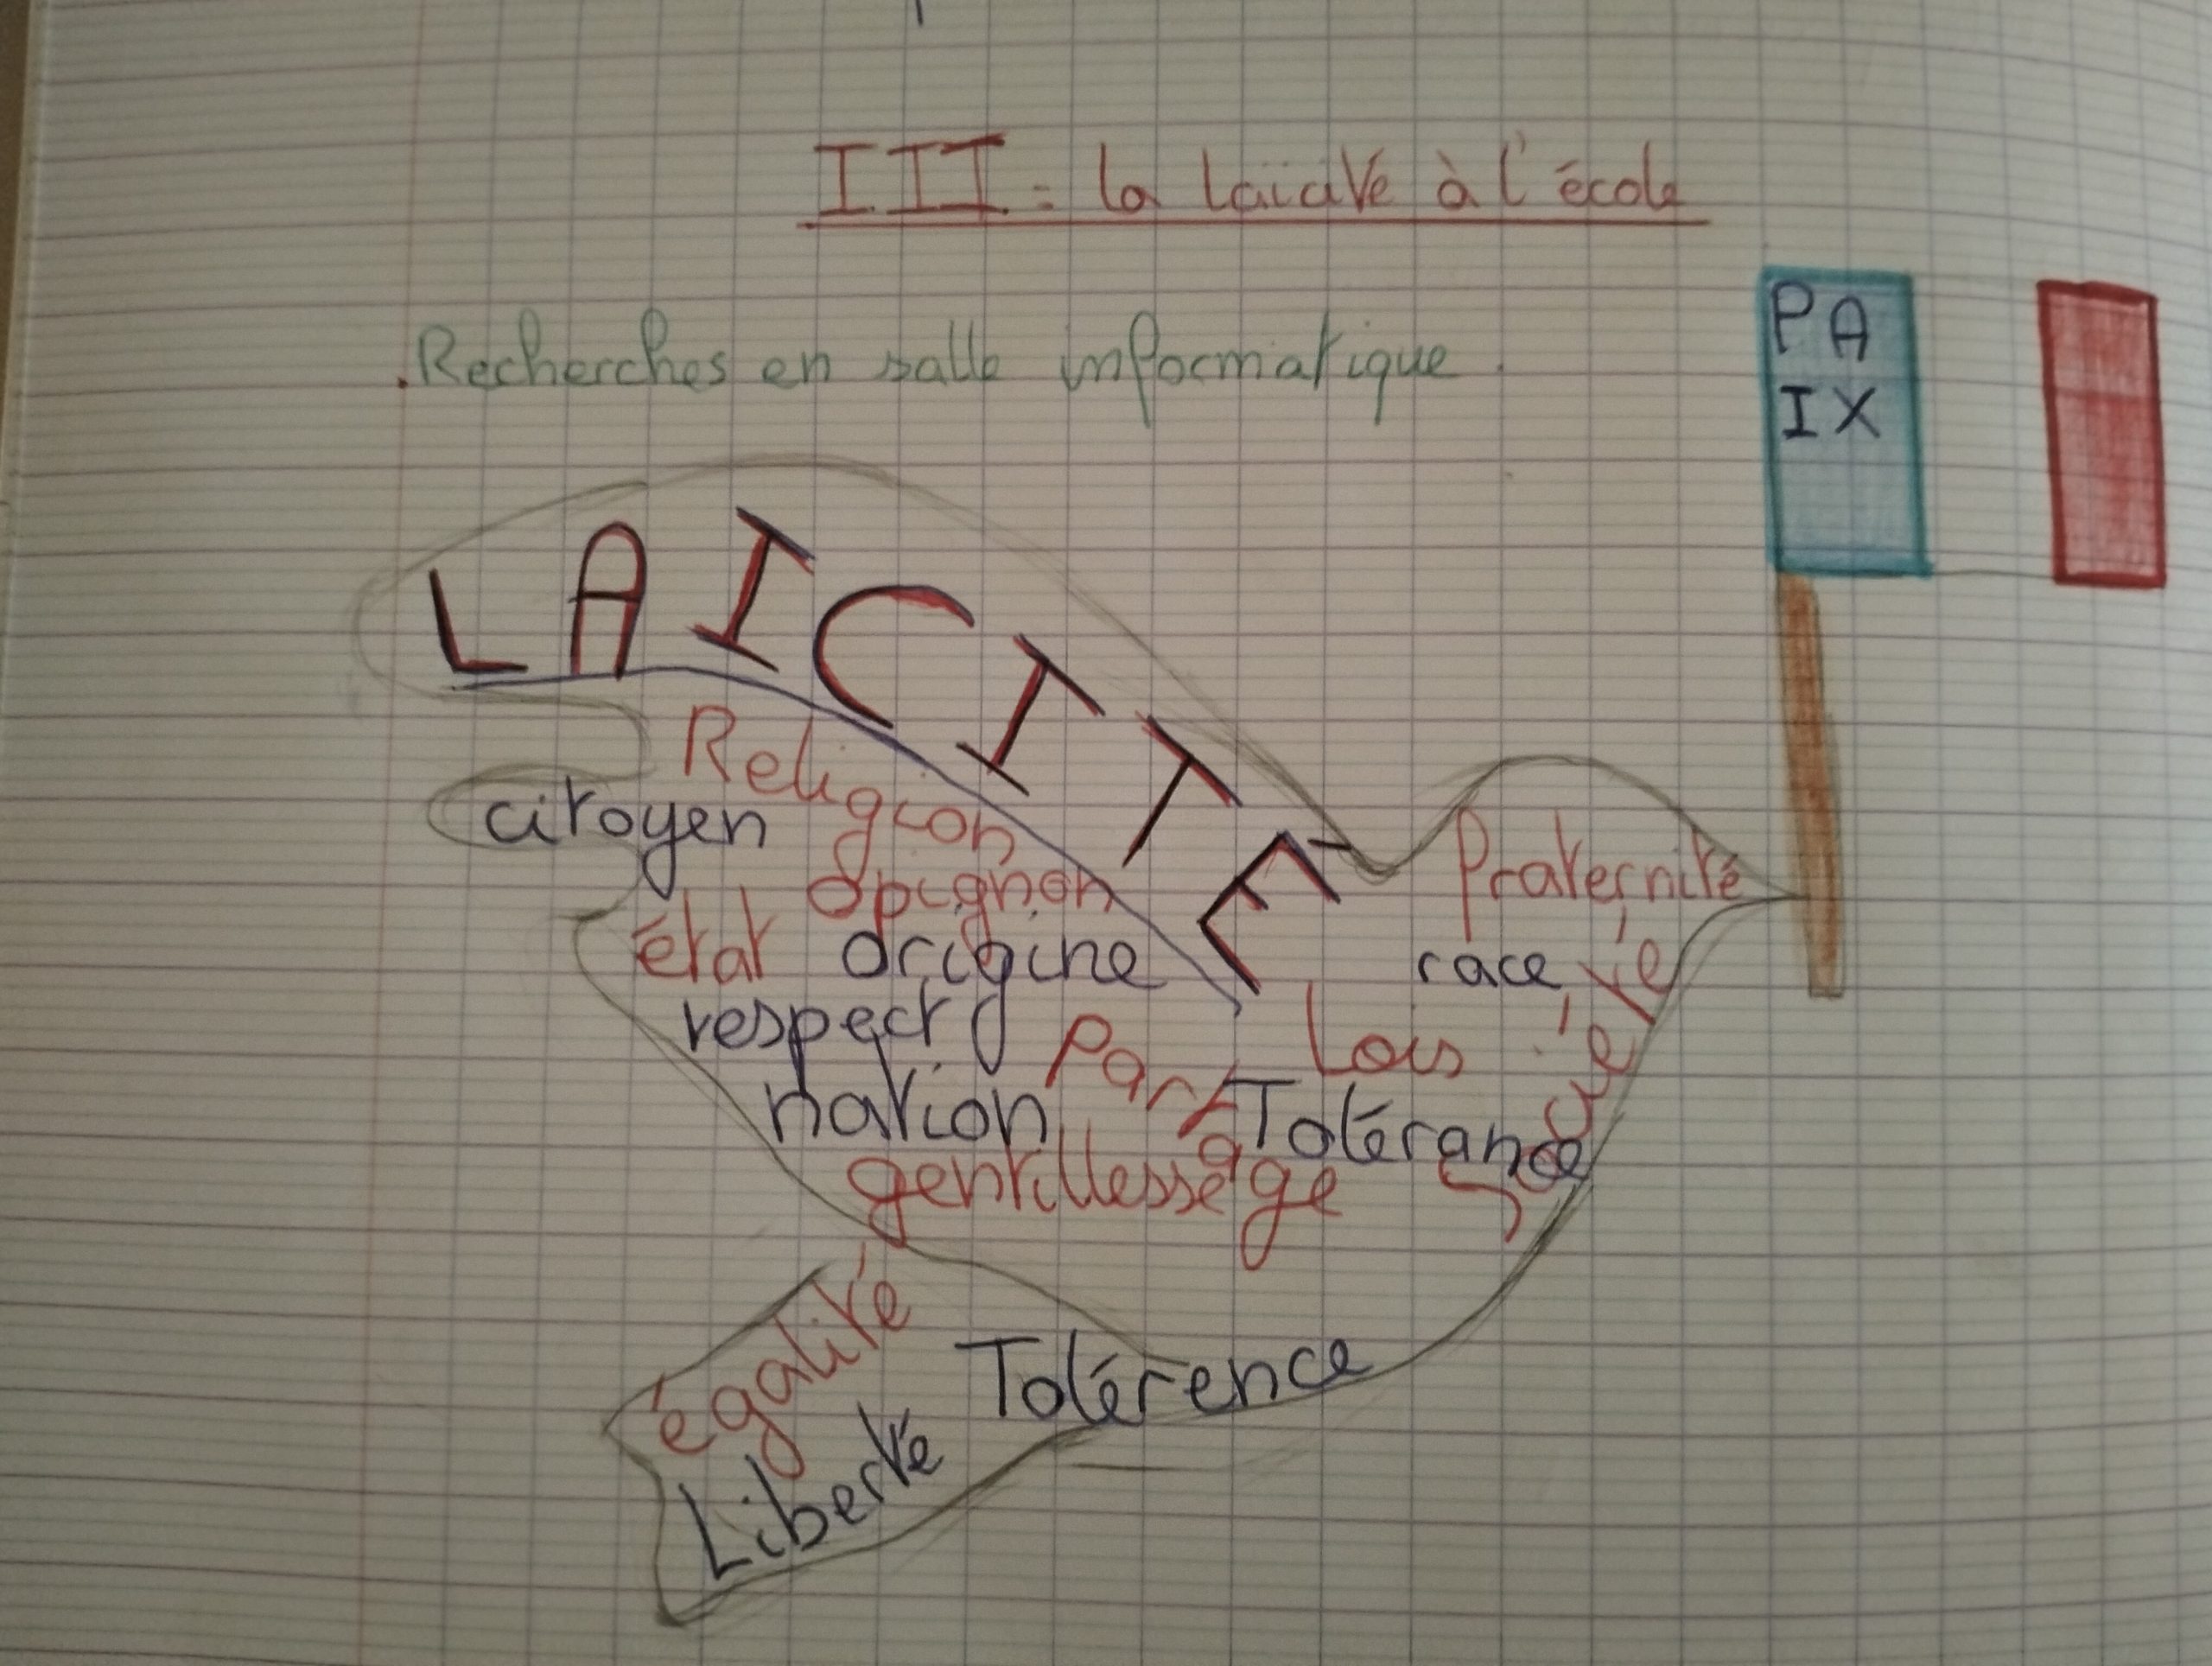 III : la laïcité à l'école
PA
IX
.Recherches en salle informatique.
LAICITE
Religion
citoyen
opignon
Fraternité
état
origine
race
respect
Lois
Partage
nation
Tolérance
société
gentillesse
égalité
Tolérence
Liberté